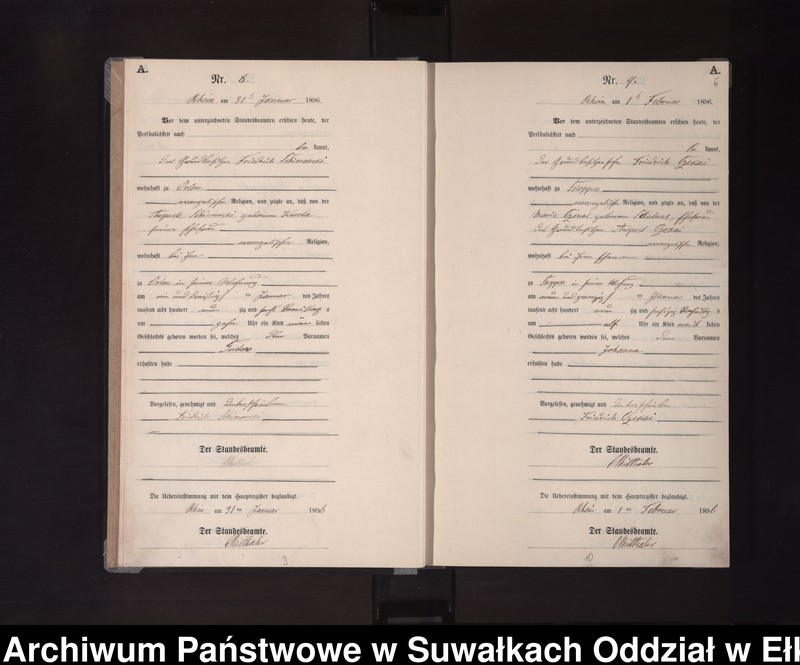 A.
Nr. 8.
Rhein am 31 Januar 1896.
Vor dem unterzeichneten Standesbeamten erschien heute, der
Persönlichkeit nach
be kannt,
Friedrich
wohnhaft zu Orlen
evangelischer Religion, und zeigte an, daß von der
Auguste geborenen
seiner Ehefrau
evangelischer Religion,
wohnhaft bei ihm
zu Orlen in seiner Wohnung
am ein und dreißigsten Januar des Jahres
tausend acht hundert neun zig und sechs Vormittags
um zehn Uhr ein Kind männ lichen
Geschlechts geboren worden sei, welches den Vornamen
erhalten habe
Vorgelesen, genehmigt und unterschrieben
Friedrich
Der Standesbeamte.
Die Uebereinstimmung mit dem Hauptregister beglaubigt.
Rhein am 31 ten Januar 1896
Der Standesbeamte.
3
A.
6
Nr. 9.
Rhein am 1 Februar 1896.
Vor dem unterzeichneten Standesbeamten erschien heute, der
Persönlichkeit nach
be kannt,
Friedrich Czekai
wohnhaft zu
evangelischer Religion, und zeigte an, daß von der
Marie Czekai geborenen Ehefrau
des Grundbesitzers August Czekai
evangelischer Religion,
wohnhaft bei ihrem Ehemann
zu in seiner Wohnung
am neun und zwanzigsten Januar des Jahres
tausend acht hundert neun zig und sechs
um elf Uhr ein Kind weib lichen
Geschlechts geboren worden sei, welches den Vornamen
Johanna
erhalten habe
Vorgelesen, genehmigt und unterschrieben
Friedrich Czekai
Der Standesbeamte.
Die Uebereinstimmung mit dem Hauptregister beglaubigt.
Rhein am 1 ten Februar 1896
Der Standesbeamte.
10
Archiwum Państwowe w Suwałkach Oddział w Ełk